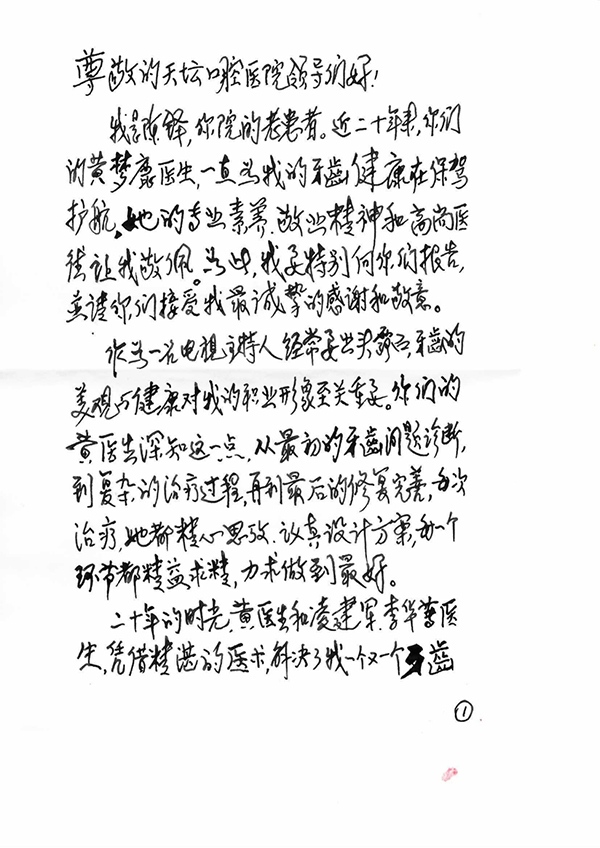 尊敬的天坛口腔医院领导们好!
我是陈铎,你院的老患者。近二十年来,你们
的黄梦康医生,一直为我的牙齿健康在保驾
护航。她的专业素养、敬业精神和高尚医
德让我敬佩。为此,我要特别向你们报告,
并请你们接受我最诚挚的感谢和敬意。
作为一名电视主持人经常要出头露面,牙齿的
美观与健康对我的职业形象至关重要。你们的
黄医生深知这一点,从最初的牙齿问题诊断,
到复杂的治疗过程,再到最后的修复完善,每次
治疗,她都精心思致、认真设计方案,每一个
环节都精益求精,力求做到最好。
二十年的时光,黄医生和凌建军、李华等医
生,凭借精湛的医术,解决了我一个又一个牙齿
①